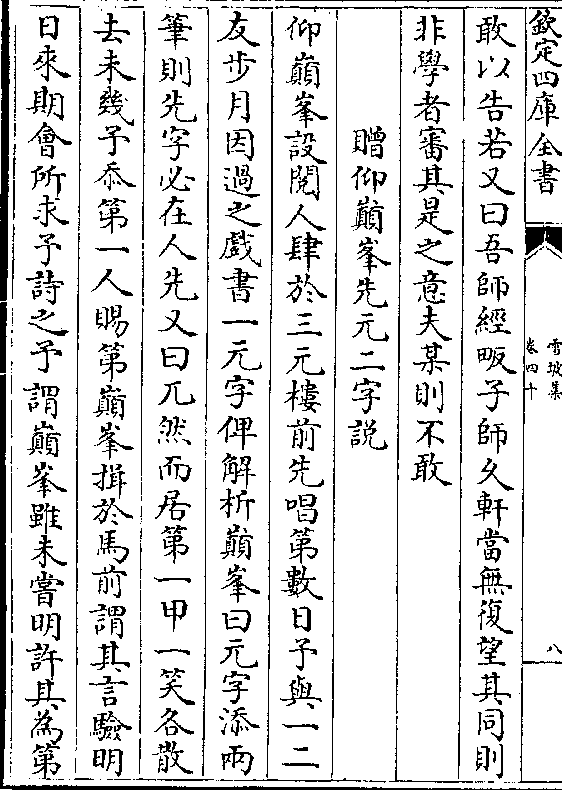 欽定四庫全書
雪坡集
卷四十
八
敢以告若又曰吾師經畈子師久軒當無復望其同則
非學者審其是之意夫某則不敢
贈仰巔峯先元二字說
仰巔峯設閱人肆於三元樓前先唱第數日予與一二
友步月因過之戲書一元字俾解析巔峯曰元字添兩
筆則先字必在人先又曰兀然而居第一甲一笑各散
去未幾予忝第一人賜第巔峯揖於馬前謂其言驗明
日來期會所求予詩之予謂巔峯雖未嘗明許其為第